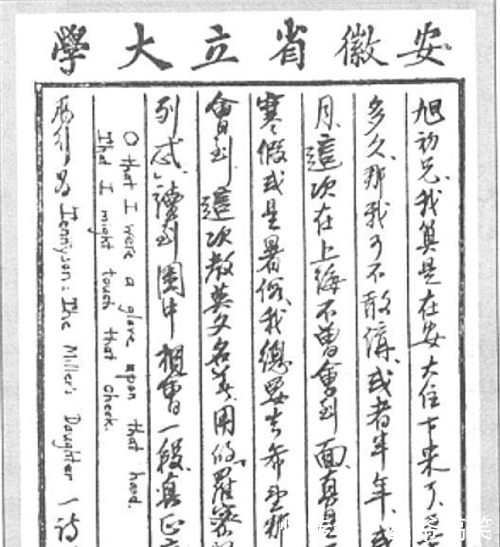 安徽省立大學
旭初兄、我算是在安大住下来了、
多久、那我可不敢講、或者半年、或
月、這次在上海不曾會到面、真
寒假或是暑假、我總要去
會到、這次教英文名著、用的羅密
到園中相會一段、真正
O that I were a glove upon that hand,
That I might touch that cheek.
Tennyson: The Miller's Daughter 一詩